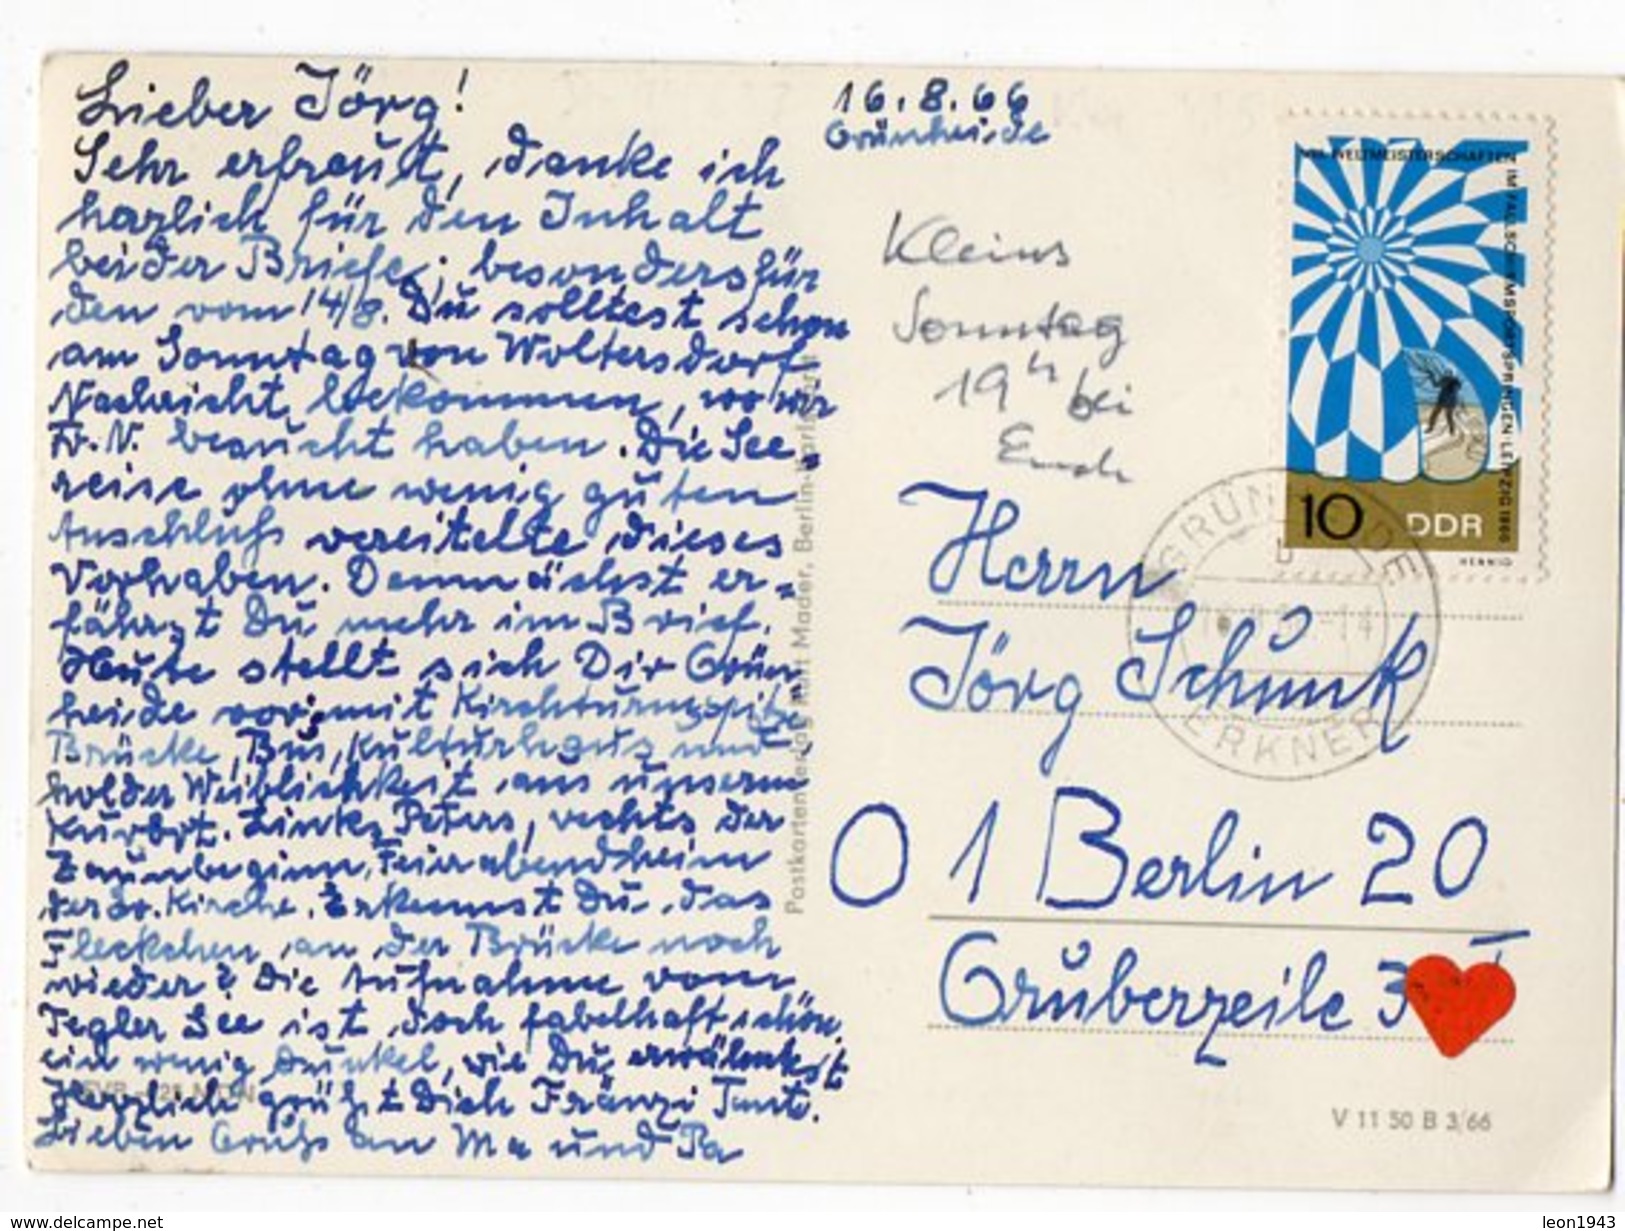 Lieber Jörg!
Sehr erfraut, danke ich
harzlich für den Inhalt
beider Briefe, besonders für
den vom 14/8. Du solltest schon
am Sonntag von Woltersdorf
Nachricht bekommen, wo wir
Fr. N. besucht haben. Die See-
reise ohne wenig guten
Anschluß vereitelte dieses
Vorhaben. Demnächst er-
fährst Du mehr im Brief.
Heute stellt sich Dir Grün-
heide vor; mit Kirchturmspitze
Brücke, Bus, Kulturhaus und
holder Weiblichkeit aus unserm
Kurort. Links Peters, rechts der
Zaunbeginn, Feierabendheim
der Kirche. Erkennst Du das
Fleckchen an der Brücke noch
wieder? Die Aufnahme vom
Tegler See ist doch fabelhaft schön,
ein wenig dunkel, wie Du erwähntest
Herzlich grüßt Dich Fränzi Tante.
Lieben Gruß an Ma und Pa
16.8.66
Grünheide
Kleins
Sonntag
19h bei
Euch
Herrn
Jörg Schunk
O 1 Berlin 20
Gruberzeile 3
WELTMEISTERSCHAFTEN
IM FALLSCHIRMSPRINGEN LEIPZIG 1966
10 DDR
HENNIG
GRÜNHEIDE
b
ERKNER
Postkartenverlag Kurt Mader, Berlin-Karlshorst
V 11 50 B 3/66
leon1943
www.delcampe.net